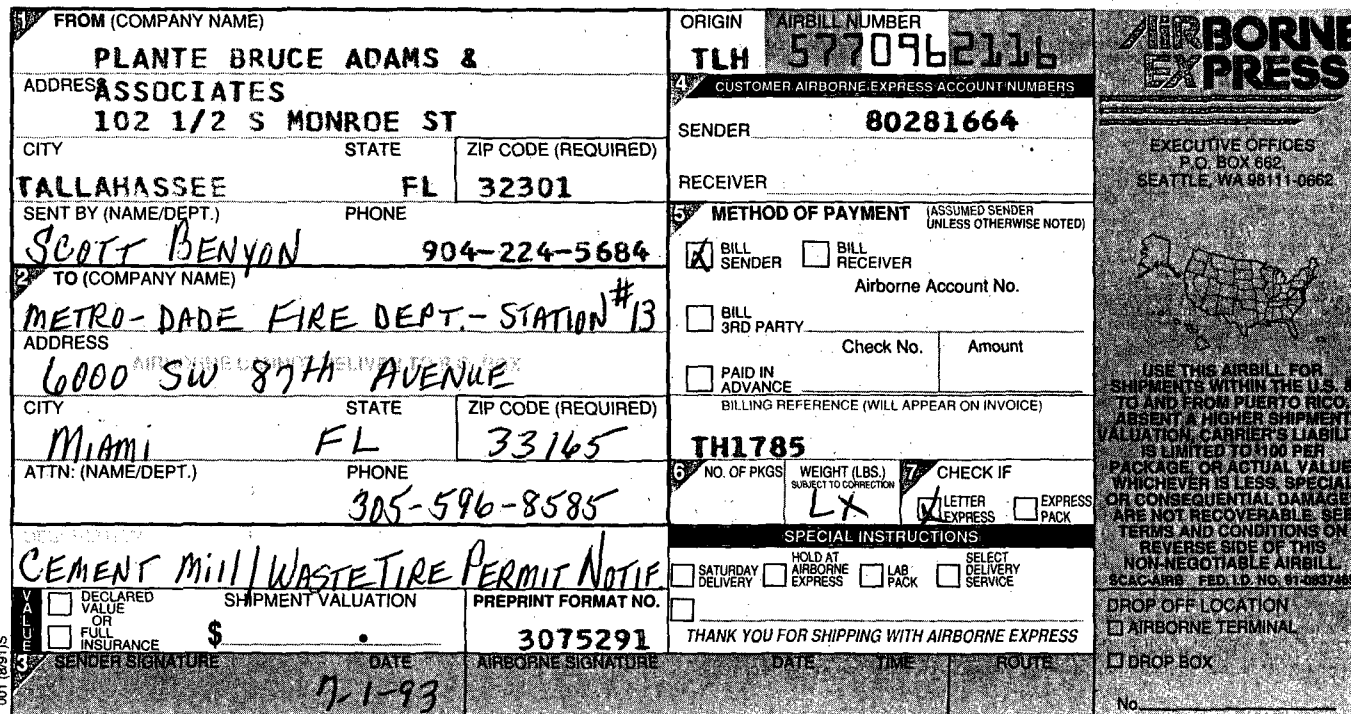 FROM (COMPANY NAME)
PLANTE BRUCE ADAMS &
ADDRESS
ASSOCIATES
102 1/2 S MONROE ST
CITY STATE ZIP CODE (REQUIRED)
TALLAHASSEE FL 32301
SENT BY (NAME/DEPT.) PHONE
SCOTT BENYON 904-224-5684
2 TO (COMPANY NAME)
METRO-DADE FIRE DEPT.- STATION #13
ADDRESS
6000 SW 87th AVENUE
CITY STATE ZIP CODE (REQUIRED)
MIAMI FL 33165
ATTN: (NAME/DEPT.) PHONE
305-596-8585
CEMENT Mill/WASTE TIRE PERMIT NOTIF
VALUE
DECLARED VALUE
OR
FULL INSURANCE
SHIPMENT VALUATION
$ .
PREPRINT FORMAT NO.
3075291
3 SENDER SIGNATURE DATE AIRBORNE SIGNATURE DATE TIME ROUTE
7-1-93
ORIGIN AIRBILL NUMBER
TLH 5770962116
4 CUSTOMER AIRBORNE EXPRESS ACCOUNT NUMBERS
SENDER 80281664
RECEIVER
5 METHOD OF PAYMENT (ASSUMED SENDER UNLESS OTHERWISE NOTED)
X BILL SENDER BILL RECEIVER
Airborne Account No.
BILL 3RD PARTY
Check No. Amount
PAID IN ADVANCE
BILLING REFERENCE (WILL APPEAR ON INVOICE)
TH1785
6 NO. OF PKGS WEIGHT (LBS.) SUBJECT TO CORRECTION 7 CHECK IF
LX LETTER EXPRESS EXPRESS PACK
SPECIAL INSTRUCTIONS
SATURDAY DELIVERY HOLD AT AIRBORNE EXPRESS LAB PACK SELECT DELIVERY SERVICE
THANK YOU FOR SHIPPING WITH AIRBORNE EXPRESS
AIRBORNE
EXPRESS
EXECUTIVE OFFICES
P.O. BOX 662
SEATTLE, WA 98111-0662
USE THIS AIRBILL FOR
SHIPMENTS WITHIN THE U.S. &
TO AND FROM PUERTO RICO.
ABSENT A HIGHER SHIPMENT
VALUATION, CARRIER'S LIABILI
IS LIMITED TO $100 PER
PACKAGE, OR ACTUAL VALUE
WHICHEVER IS LESS. SPECIAL
OR CONSEQUENTIAL DAMAGE
ARE NOT RECOVERABLE. SEE
TERMS AND CONDITIONS ON
REVERSE SIDE OF THIS
NON-NEGOTIABLE AIRBILL.
SCAC-AIRB FED. I.D. NO.
DROP OFF LOCATION
AIRBORNE TERMINAL
DROP BOX
No.